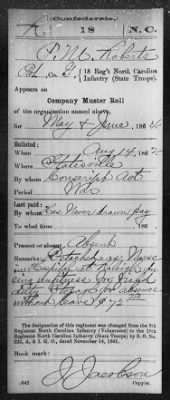 Confederate.
18 N.C.
Roberts
18 Reg't North Carolina
Infantry (State Troops).
Appears on
Company Muster Roll
of the organization named above,
for May & June, 186
Enlisted:
When Aug 14, 186
Where Statesville
By whom Conscript Act
Period War
Last paid:
By whom Has Never drawn pay
To what time , 186
Present or absent Absent
Remarks: Detached as Nurse
in Hospital at Raleigh
absence
without leave
The designation of this regiment was changed from the 8th
Regiment North Carolina Infantry (Volunteers) to the 18th
Regiment North Carolina Infantry (State Troops) by S. O. No.
222, A. & I. G. O., dated November 14, 1861.
J. Jacobson
Copyist.